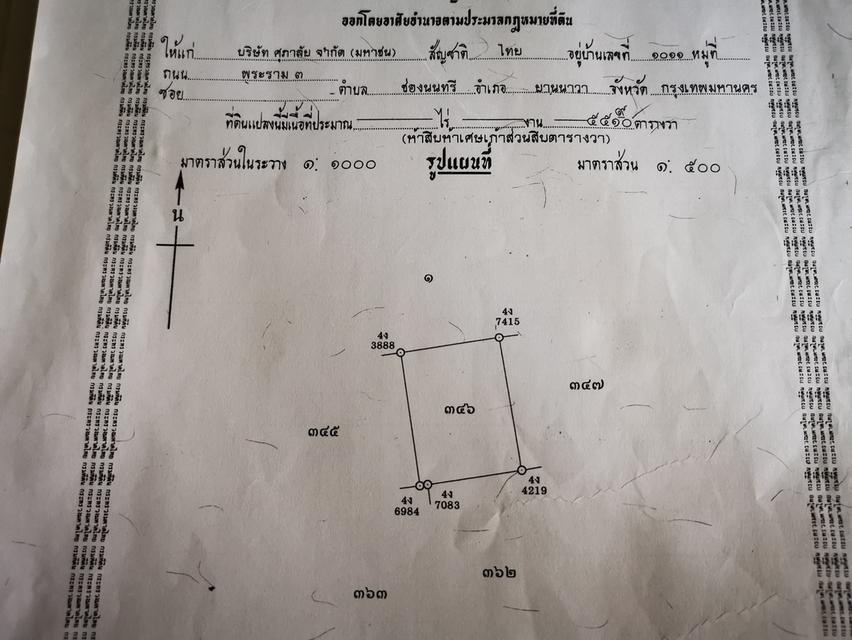 ออกโดยอาศัยอำนาจตามประมวลกฎหมายที่ดิน
ให้แก่ บริษัท ศุภาลัย จำกัด (มหาชน) สัญชาติ ไทย อยู่บ้านเลขที่ ๑๐๑๑ หมู่ที่
ถนน พระราม ๓
ซอย ตำบล ช่องนนทรี อำเภอ ยานนาวา จังหวัด กรุงเทพมหานคร
ที่ดินแปลงนี้มีเนื้อที่ประมาณ ไร่ งาน ๕๕ ๙/๑๐ ตารางวา
(ห้าสิบห้าเศษเก้าส่วนสิบตารางวา)
มาตราส่วนในระวาง ๑: ๑๐๐๐ รูปแผนที่ มาตราส่วน ๑: ๕๐๐
น
๑
4ง 7415
4ง 3888
๓๔๗
๓๔๖
๓๔๕
4ง 6984
4ง 7083
4ง 4219
๓๖๒
๓๖๓